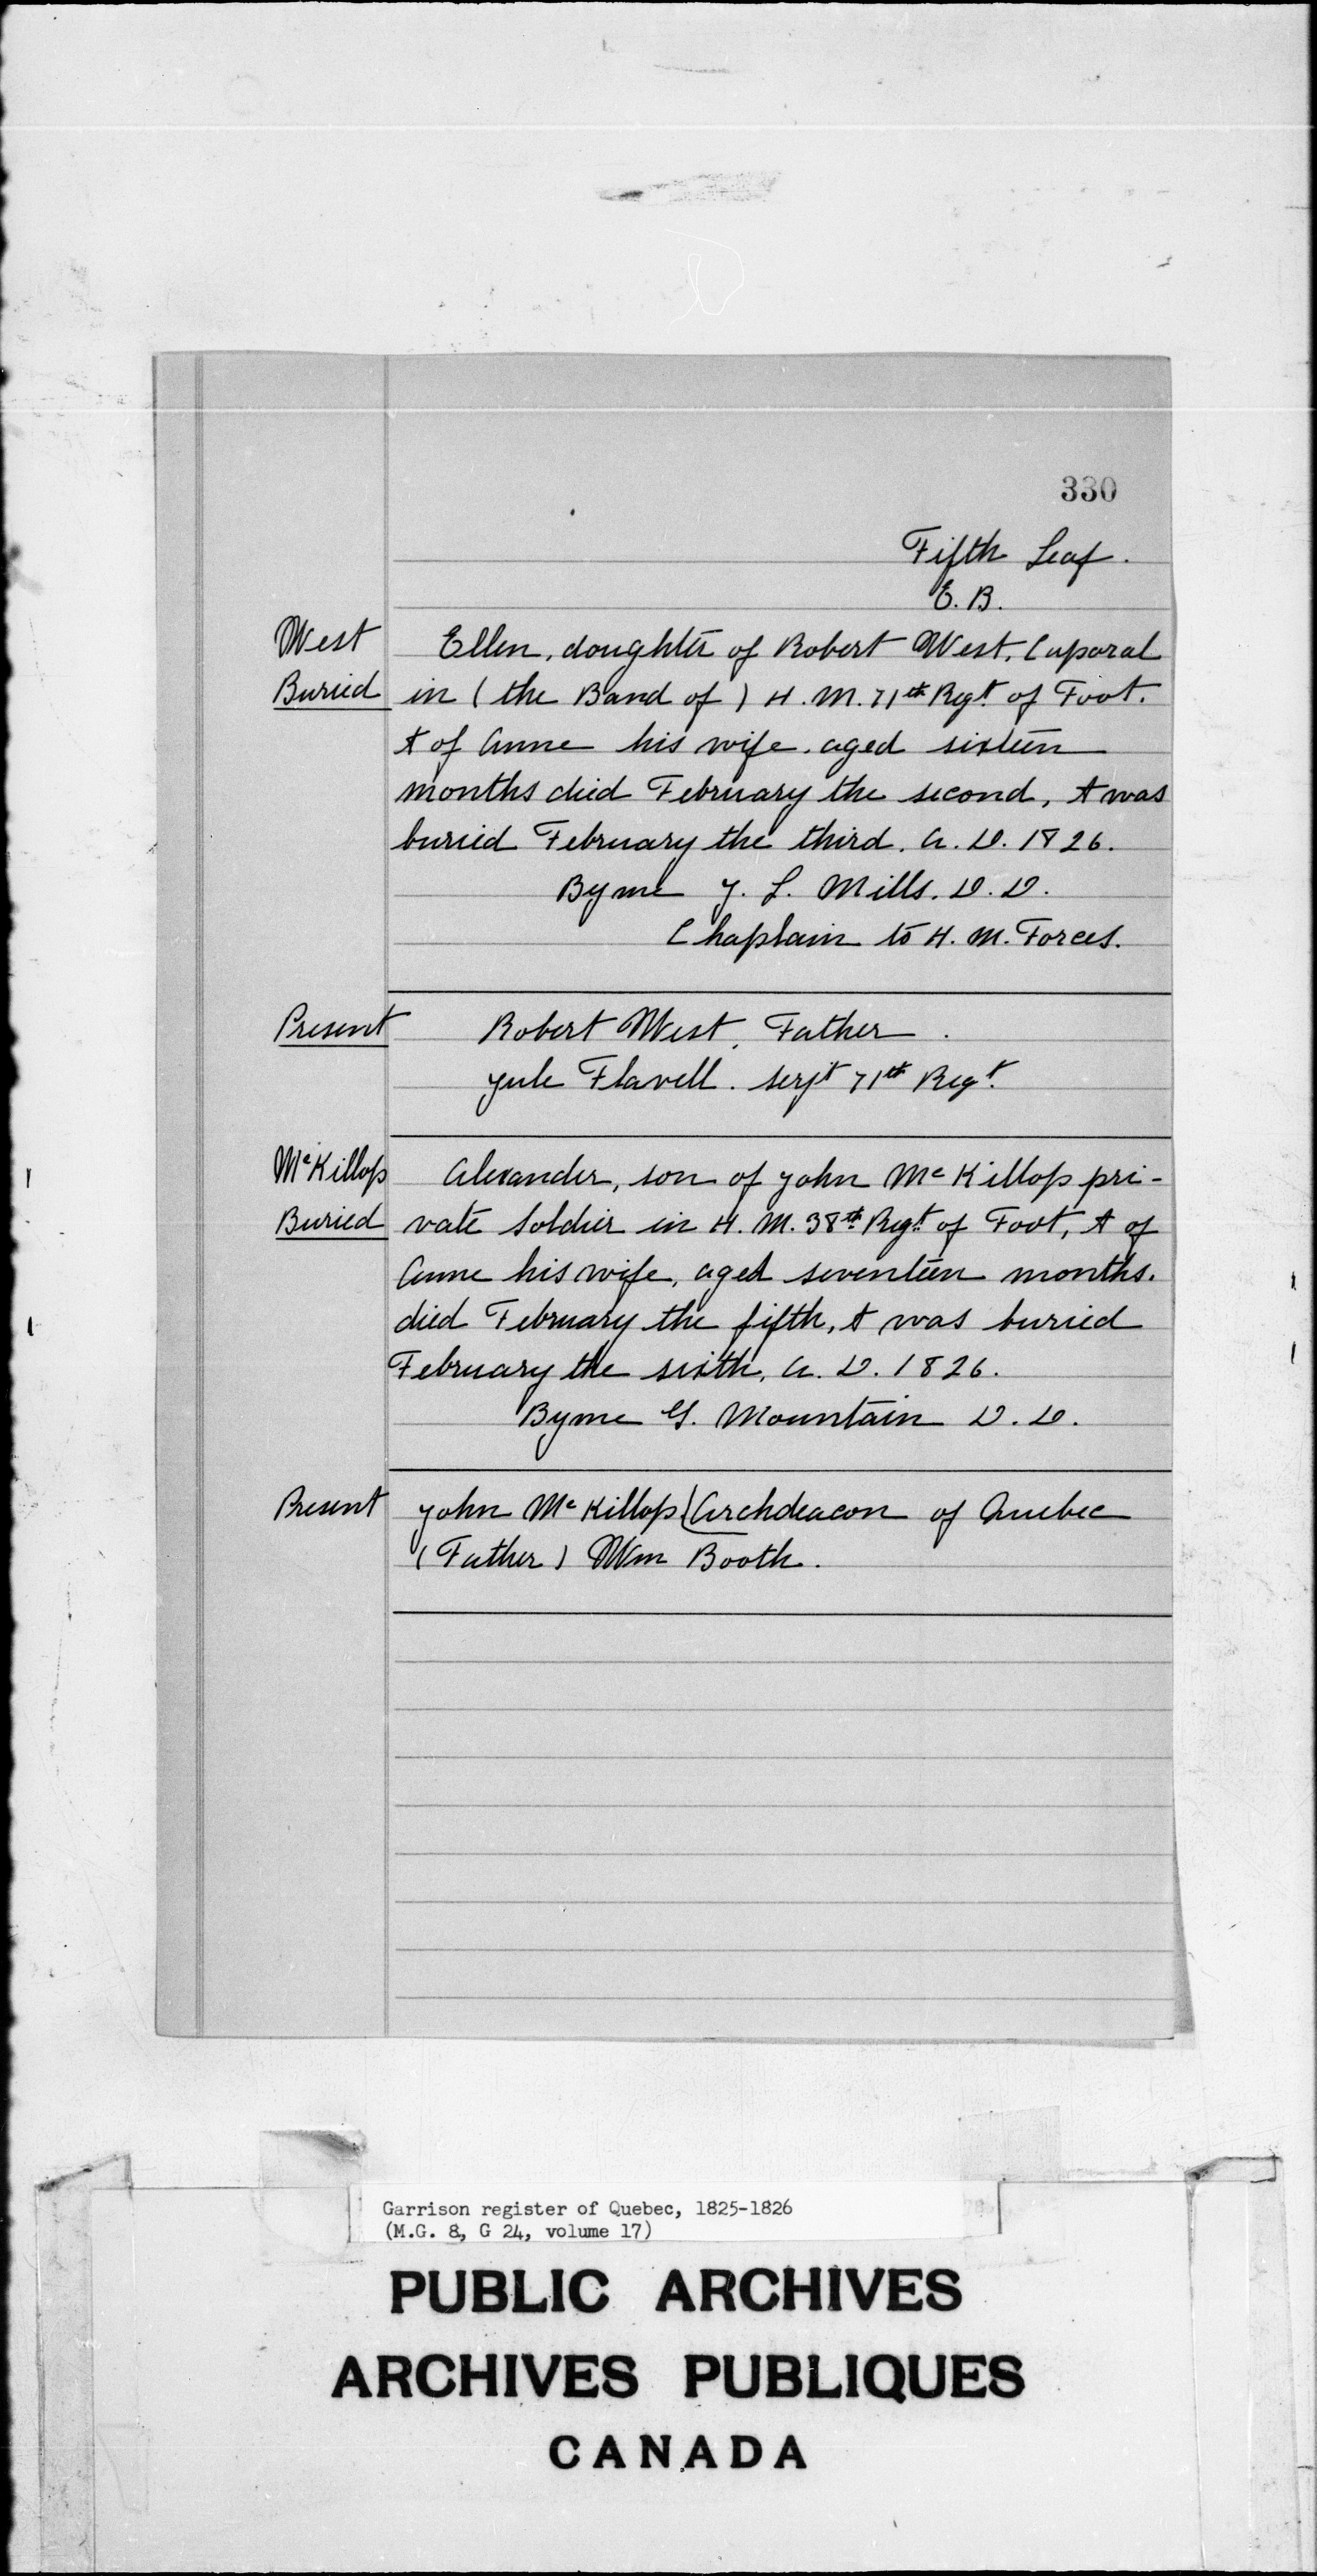 330
Fifth Leaf.
E. B.
West Ellen, doughter of Robert West, Caporal
Buried in (the Band of) H. M. 71th Regt. of Foot.
& of Anne his wife, aged sixteen
months died February the second, & was
buried February the third. A. D. 1826.
By me J. L. Mills. D. D.
Chaplain to H. M. Forces.
Present Robert West, Father.
Jule Flavell. serjt 71th Regt.
McKillop Alexander, son of John McKillop pri-
Buried vate soldier in H. M. 38th Regt. of Foot, & of
Anne his wife, aged seventeen months.
died February the fifth, & was buried
February the sixth, A. D. 1826.
By me G. Mountain D. D.
Present John McKillop (Archdeacon of Quebec
(Father) Wm Booth.
Garrison register of Quebec, 1825-1826
(M.G. 8, G 24, volume 17)
PUBLIC ARCHIVES
ARCHIVES PUBLIQUES
CANADA